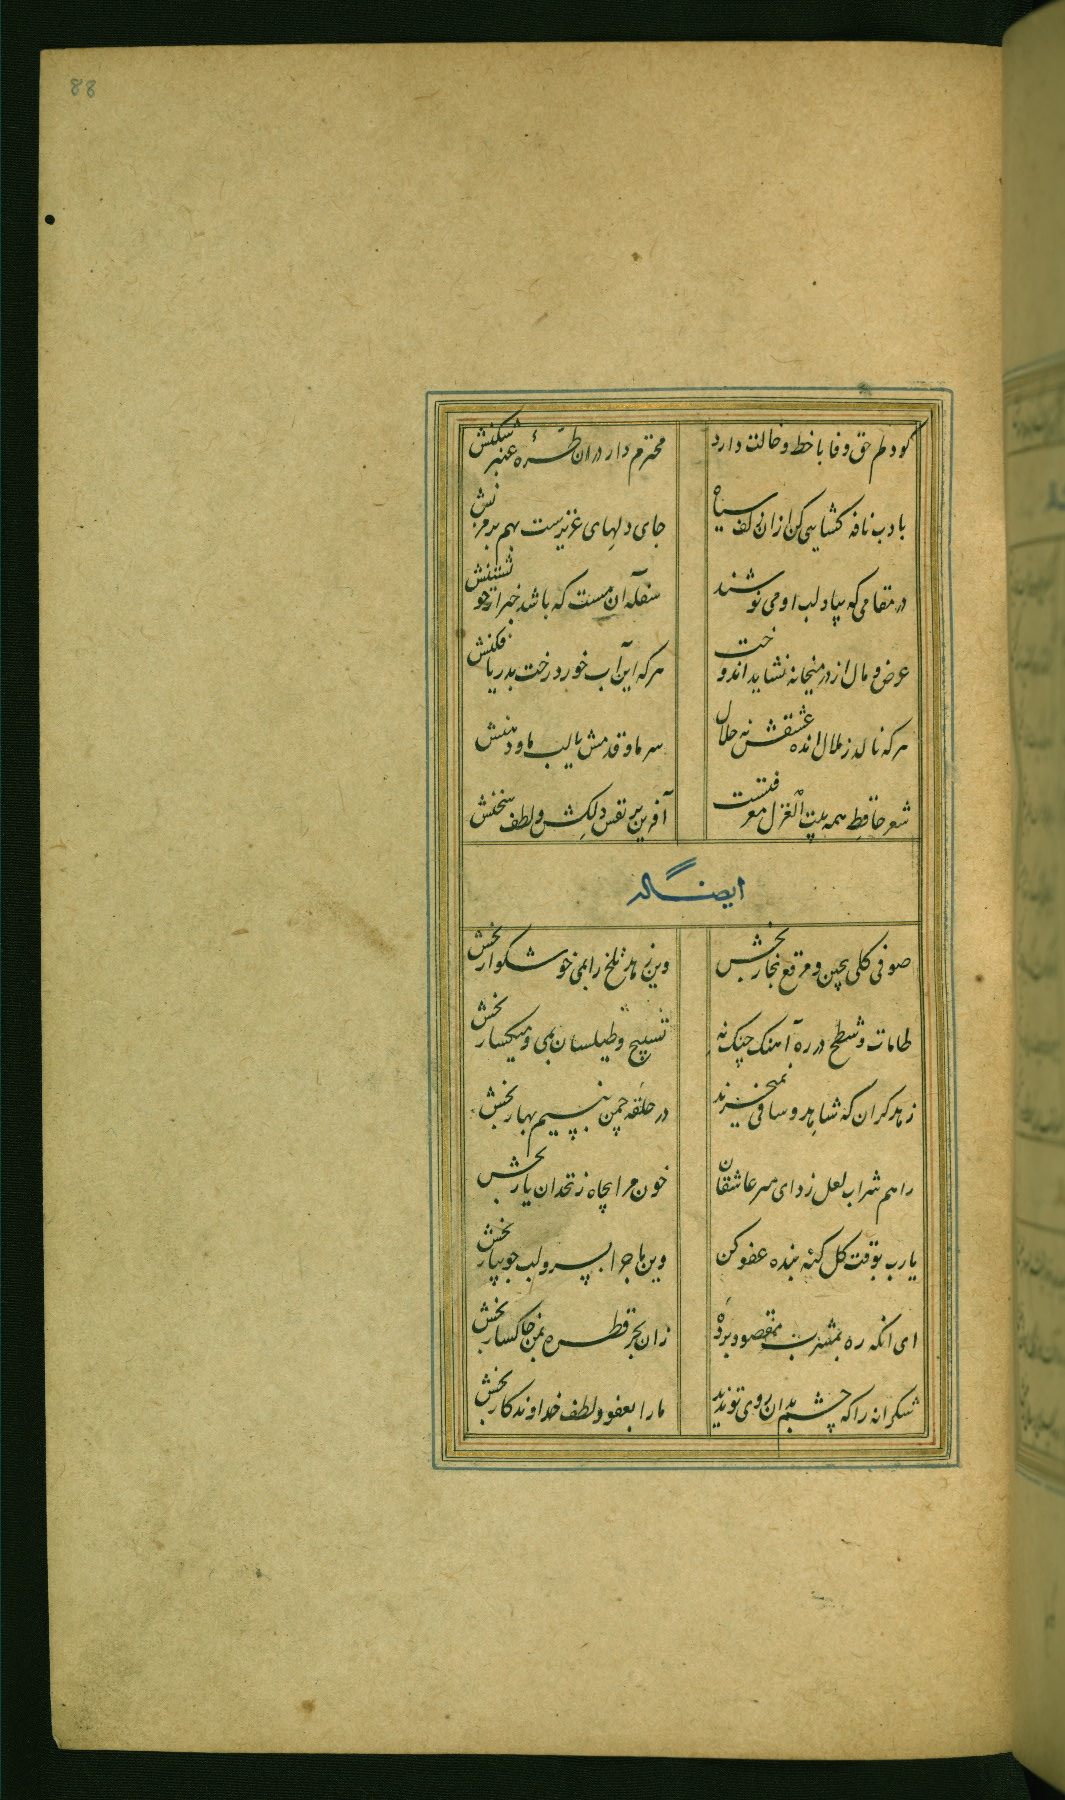 88
کو دلم حق وفا با خط و خالت دارد
محترم دار در ان طره عنبر شکنش
باد ب نافه کشایی کن ازان زلف سیاه
جای دلهای عزیزست بهم بر مزنش
در مقامی که بیاد لب او می نوشند
سفله آن مست که باشد خبر از خویشتنش
عرض و مال از در میخانه نشاید اندوخت
هر که این آب خورد رخت بدریا فکنش
هر که نالد ز ملال انده عشقش نه حلال
سر ما و قدمش یا لب ما و دهنش
شعر حافظ همه بیت الغزل معرفتست
آفرین بر نفس دلکش و لطف سخنش
ایضا له
صوفی کلی بچین و مرقع بخار بخش
وین زهد تلخ را بمی خوشکوار بخش
طامات و شطح در ره آهنک چنک نه
تسبیح و طیلسان بمی و میکسار بخش
زهد کران که شاهد و ساقی نمیخرند
در حلقه چمن بنسیم بهار بخش
راهم شراب لعل زد ای میر عاشقان
خون مرا بچاه زنخدان یار بخش
یارب بوقت کل کنه بنده عفو کن
وین ماجرا بسرو لب جویبار بخش
ای انکه ره بمشرب مقصود برده
زان بحر قطره بمن خاکسار بخش
شکرانه را که چشم بدان روی تو ندید
ما را بعفو و لطف خداوندکار بخش